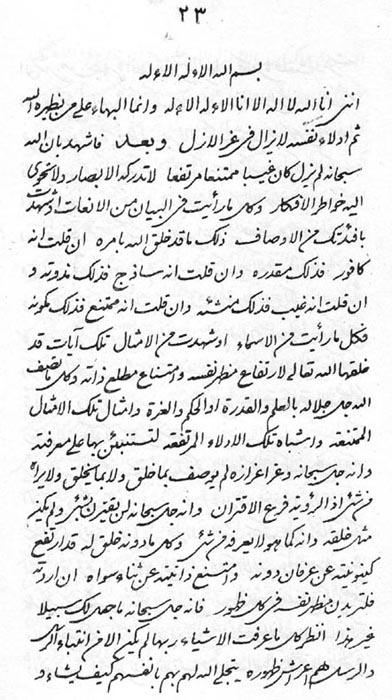 ٢٣
بسم الله الاءله الاءله
اننی انا الله لا اله الا انا الاءله الاءله و انما البهاء علی من یظهره الله
ثم ادلاء نفسه لا یزال فی عز الازل و بعد فاشهد بان الله
سبحانه لم یزل کان غیبا ممتنعا مرتفعا لا تدرکه الابصار ولا تحوی
الیه خواطر الافکار و کل ما رأیت فی البیان من الانعات او شهدت
بافئدتک من الاوصاف ذلک ما قد خلق الله بامره ان قلت انه
کافور فذلک مقدره و ان قلت انه ساذج فذلک مذوته و
ان قلت انه غیب فذلک منشئه و ان قلت انه ممتنع فذلک مکونه
فکل ما رأیت من الاسماء او شهدت من الامثال تلک آیات قد
خلقها الله تعالی لارتفاع مظهر نفسه و امتناع مطلع ذاته و کل ما تصف
الله جل جلاله بالعلم و القدرة او الحکم و العزة و امثال تلک الامثال
الممتنعة و اشباه تلک الادلاء المرتفعة لتستنبئن بها علی معرفته
و انه جل سبحانه و عز اعزازه لم یوصف بما خلق ولا بما یخلق ولا یراه
من شئ اذ الرؤیة فرع الاقتران و انه جل سبحانه لن یقترن بشئ و لم یکن
مثل خلقه و انه کما هو لا یعرفه من شئ و کل ما دونه خلق له قد ارتفع
کینونیته عن عرفان دونه و امتنع ذاتیته عن ثناء سواه ان اردته
فلتریدن مظهر نفسه فی کل ظهور فانه جل سبحانه ما جعل لک سبیلا
غیر هذا انظر کل ما عرفت الاشیاء ربها لم یکن الا من انبیاء
والرسل هم اعراش ظهوره یتجلی الله لهم بهم بانفسهم کیف یشاء و